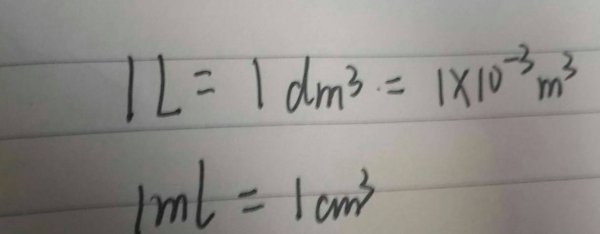 1L = 1 dm³ = 1×10⁻³ m³
1ml = 1 cm³